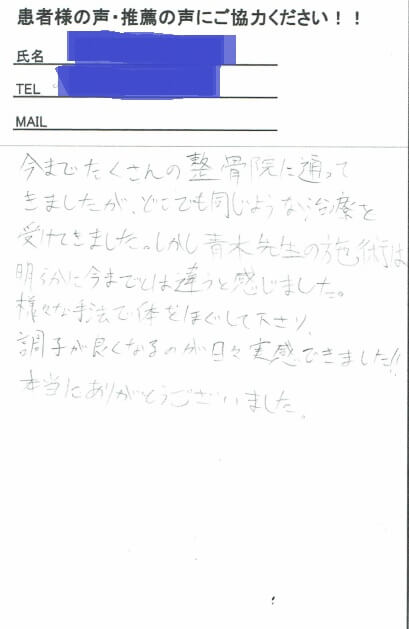 患者様の声・推薦の声にご協力ください！！
氏名
TEL
MAIL
今までたくさんの整骨院に通って
きましたが、どこでも同じような治療を
受けてきました。しかし青木先生の施術は
明らかに今までとは違うと感じました。
様々な手法で体をほぐして下さり、
調子が良くなるのが日々実感できました!!
本当にありがとうございました。